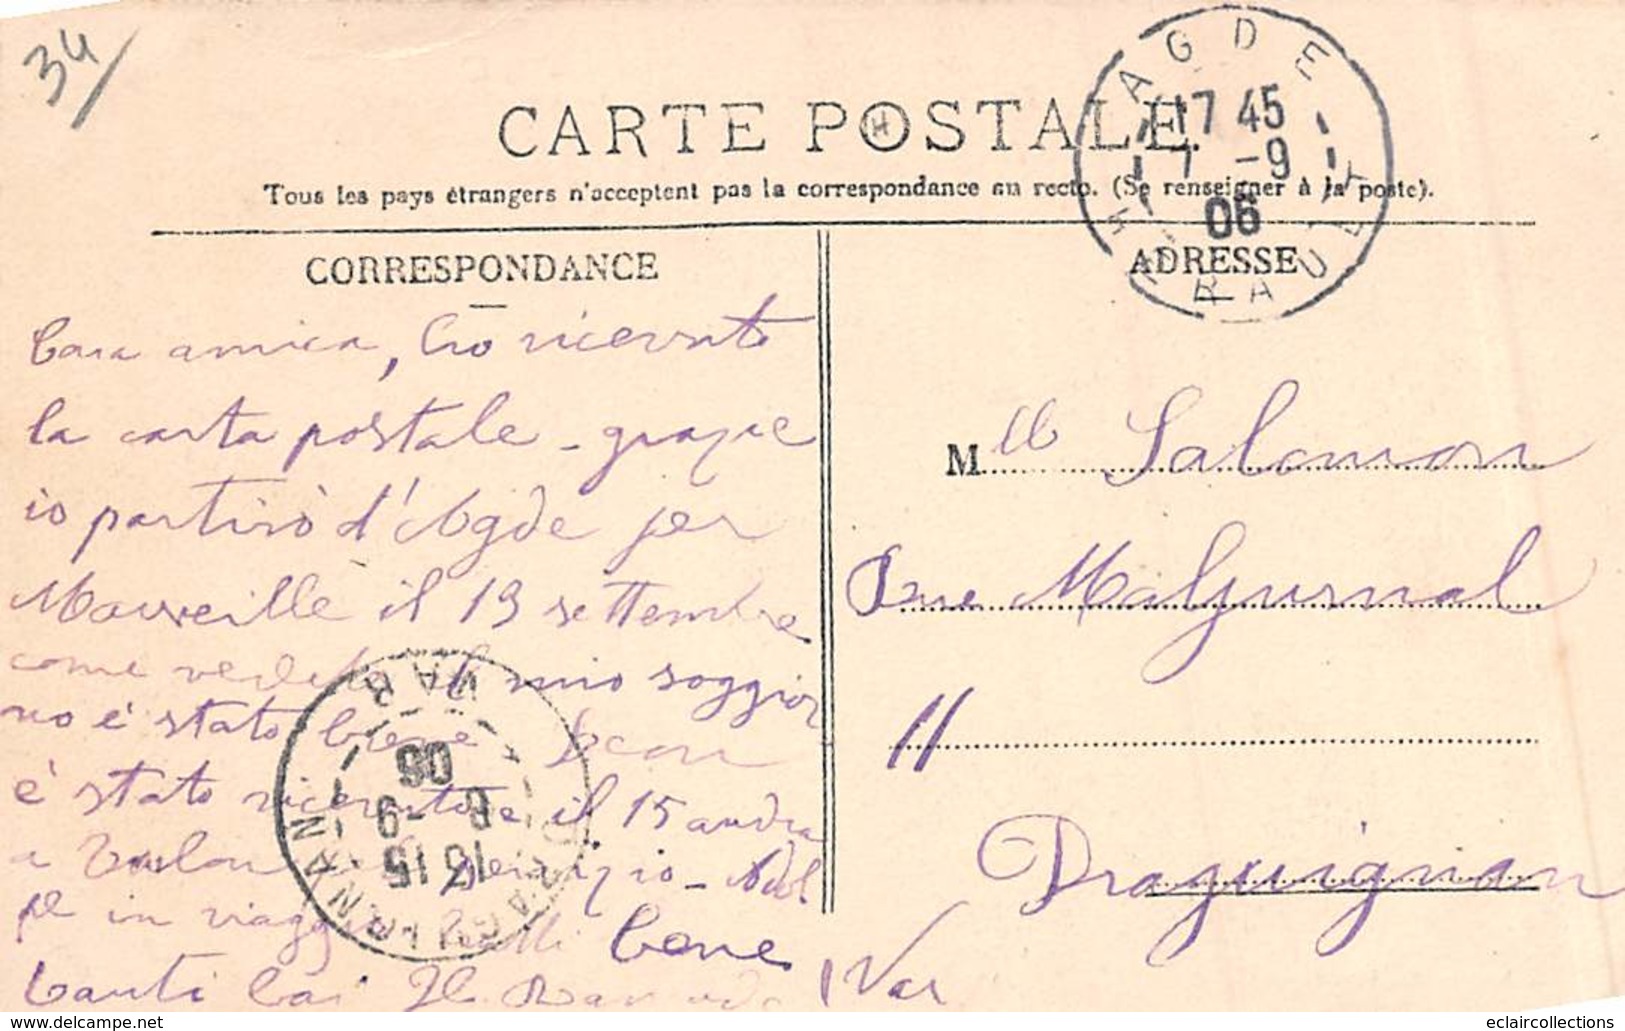 34
CARTE POSTALE.
Tous les pays étrangers n'acceptent pas la correspondance au recto. (Se renseigner à la poste).
AGDE
17 45
7 -9
06
HERAULT
CORRESPONDANCE
Cara amica, ho ricevuto
la carta postale - grazie
io partirò d'Agde per
Marseille il 13 settembre
come vedete il mio soggior
no è stato bene Jean
è stato il 15 andra
a Toulon
in viaggio bene
tanti
VAR
06
8 -9
13 15
DRAGUIGNAN
ADRESSE
Mlle Salomon
Rue
11
Draguignan
Var
www.delcampe.net
eclaircollections